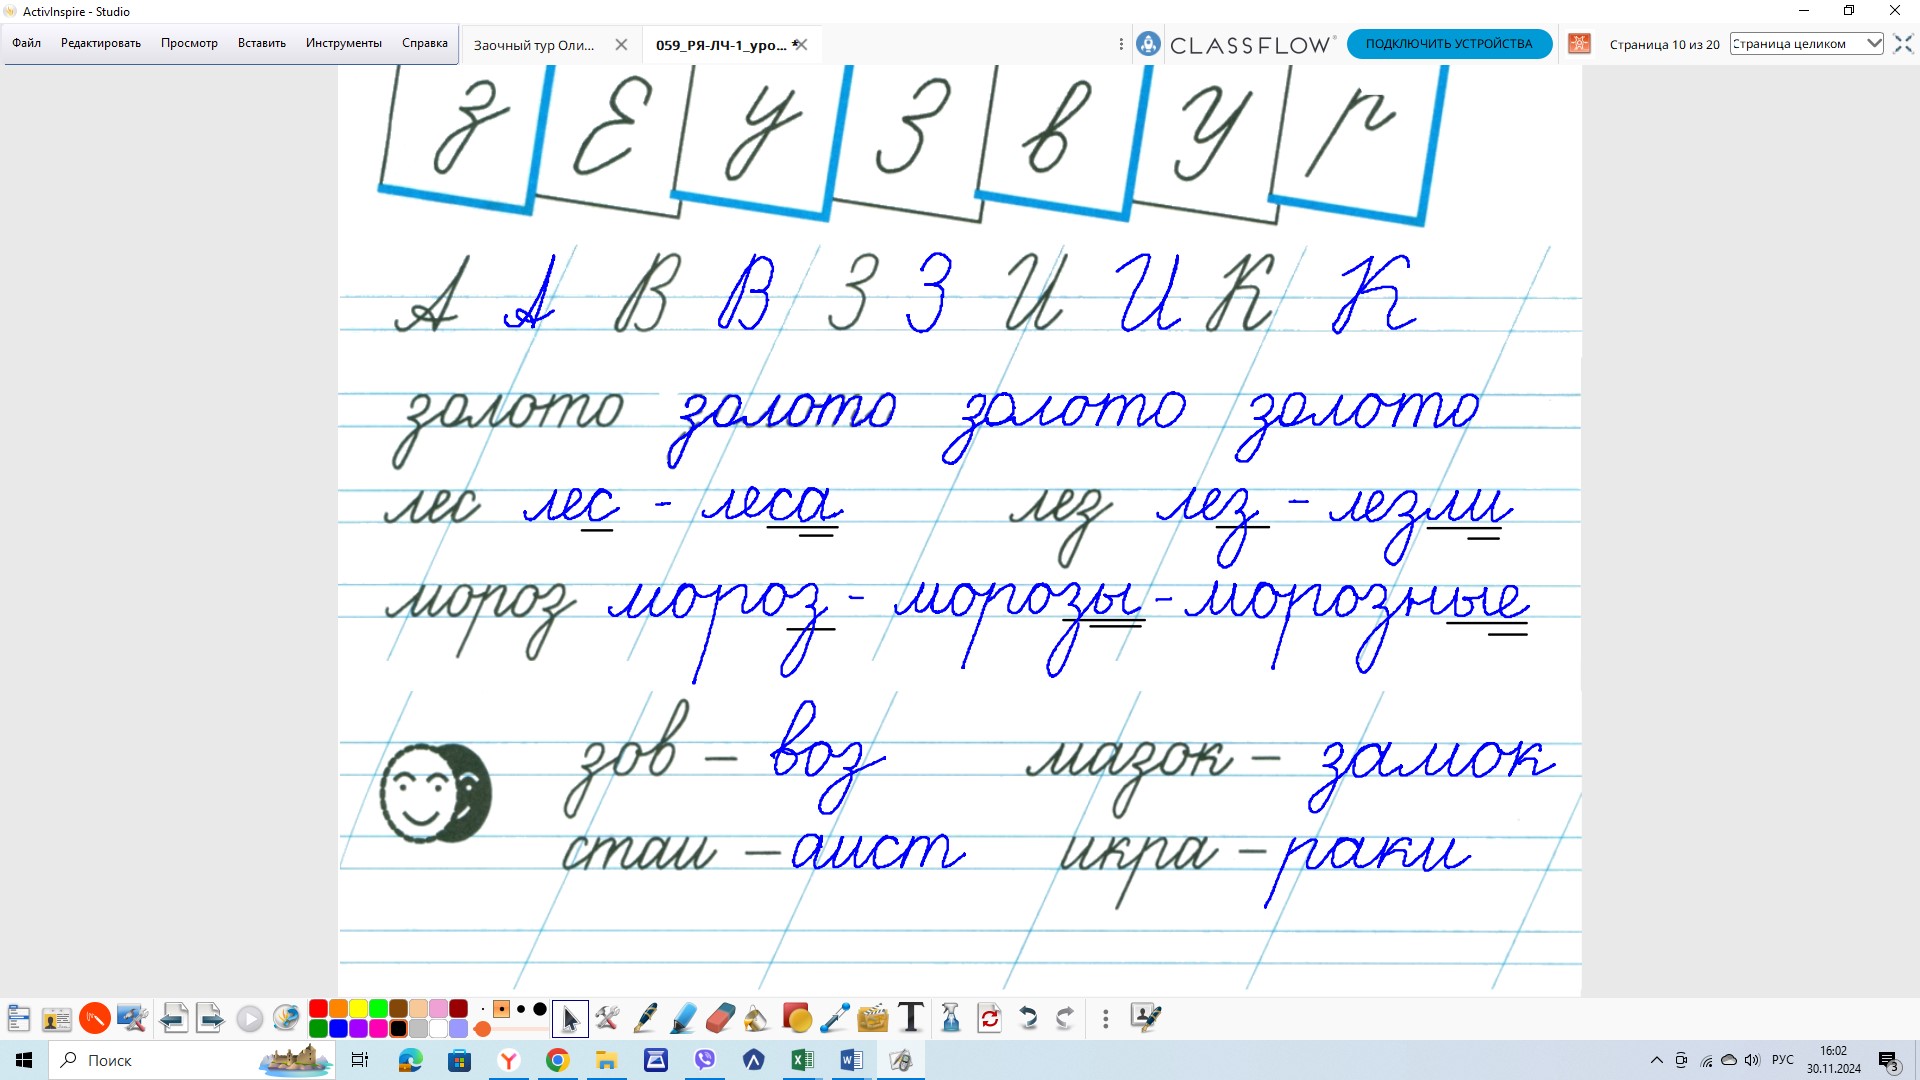 ActivInspire - Studio
Файл Редактировать Просмотр Вставить Инструменты Справка Заочный тур Оли... 059_РЯ-ЛЧ-1_уро... * CLASSFLOW ПОДКЛЮЧИТЬ УСТРОЙСТВА Страница 10 из 20 Страница целиком
з Е у З в У р
А А В В З З И И К К
золото золото золото золото
лес лес - леса лез лез - лезли
мороз мороз - морозы - морозные
зов – воз мазок – замок
стаи – аист икра – раки
Поиск РУС 16:02
30.11.2024 3